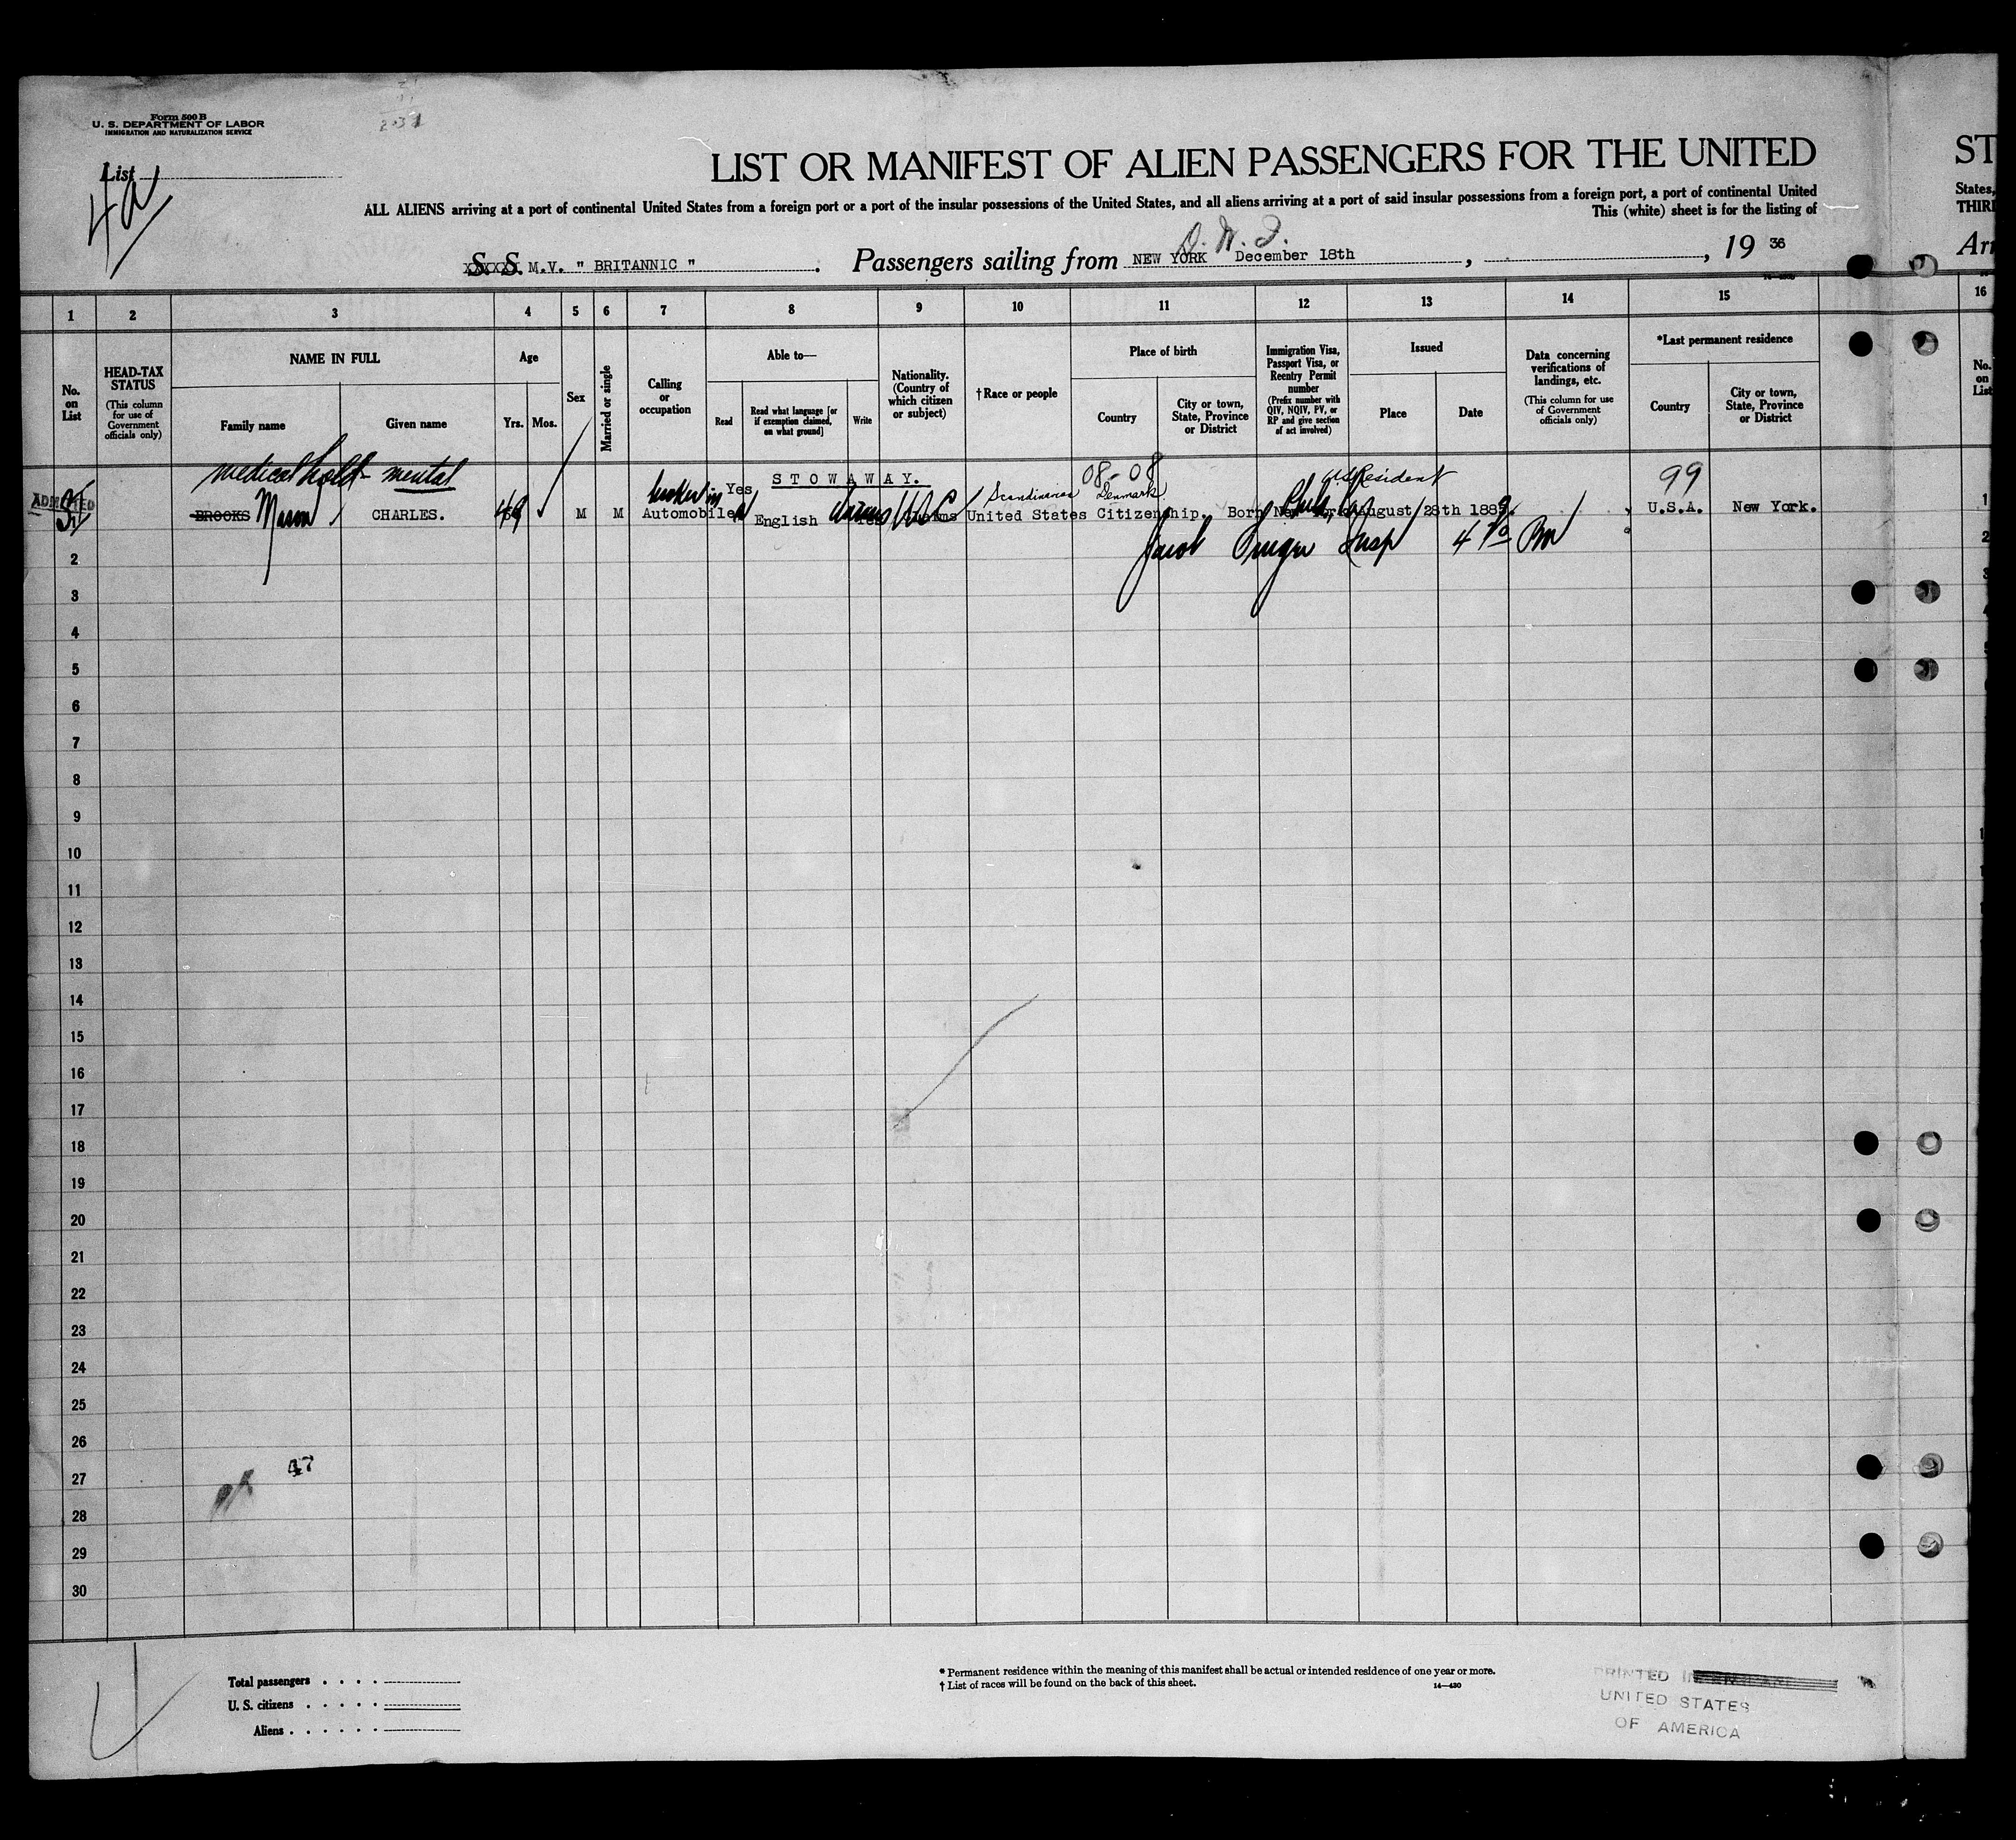 Form 500 B
U. S. DEPARTMENT OF LABOR
IMMIGRATION AND NATURALIZATION SERVICE
List
4a
LIST OR MANIFEST OF ALIEN PASSENGERS FOR THE UNITED
ST
ALL ALIENS arriving at a port of continental United States from a foreign port or a port of the insular possessions of the United States, and all aliens arriving at a port of said insular possessions from a foreign port, a port of continental United
States,
This (white) sheet is for the listing of
THIR
S. S. M.V. " BRITANNIC " . Passengers sailing from NEW YORK December 18th , , 19 36
Arr
1 2 3 4 5 6 7 8 9 10 11 12 13 14 15 16
No. on List
HEAD-TAX STATUS (This column for use of Government officials only)
NAME IN FULL
Family name
Given name
Age
Yrs. Mos.
Sex
Married or single
Calling or occupation
Able to—
Read
Read what language [or if exemption claimed, on what ground]
Write
Nationality. (Country of which citizen or subject)
† Race or people
Place of birth
Country
City or town, State, Province or District
Immigration Visa, Passport Visa, or Reentry Permit number (Prefix number with QIV, NQIV, PV, or RP and give section of act involved)
Issued
Place
Date
Data concerning verifications of landings, etc. (This column for use of Government officials only)
*Last permanent residence
Country
City or town, State, Province or District
No. on List
medical hold - mental
STOWAWAY.
08-08
US Resident
99
Yes
Scandinavian Denmark
ADMITTED
BROOKS
CHARLES.
49
M M
Automobile
English
United States Citizenship. Born August 28th 1889.
U.S.A. New York.
1
Insp
2
2
3
4
5
6
7
8
9
10
11
12
13
14
15
16
17
18
19
20
21
22
23
24
25
26
27
47
28
29
30
Total passengers . . . .
U. S. citizens . . . . .
Aliens . . . . . .
* Permanent residence within the meaning of this manifest shall be actual or intended residence of one year or more.
† List of races will be found on the back of this sheet.
14—430
PRINTED IN
UNITED STATES
OF AMERICA